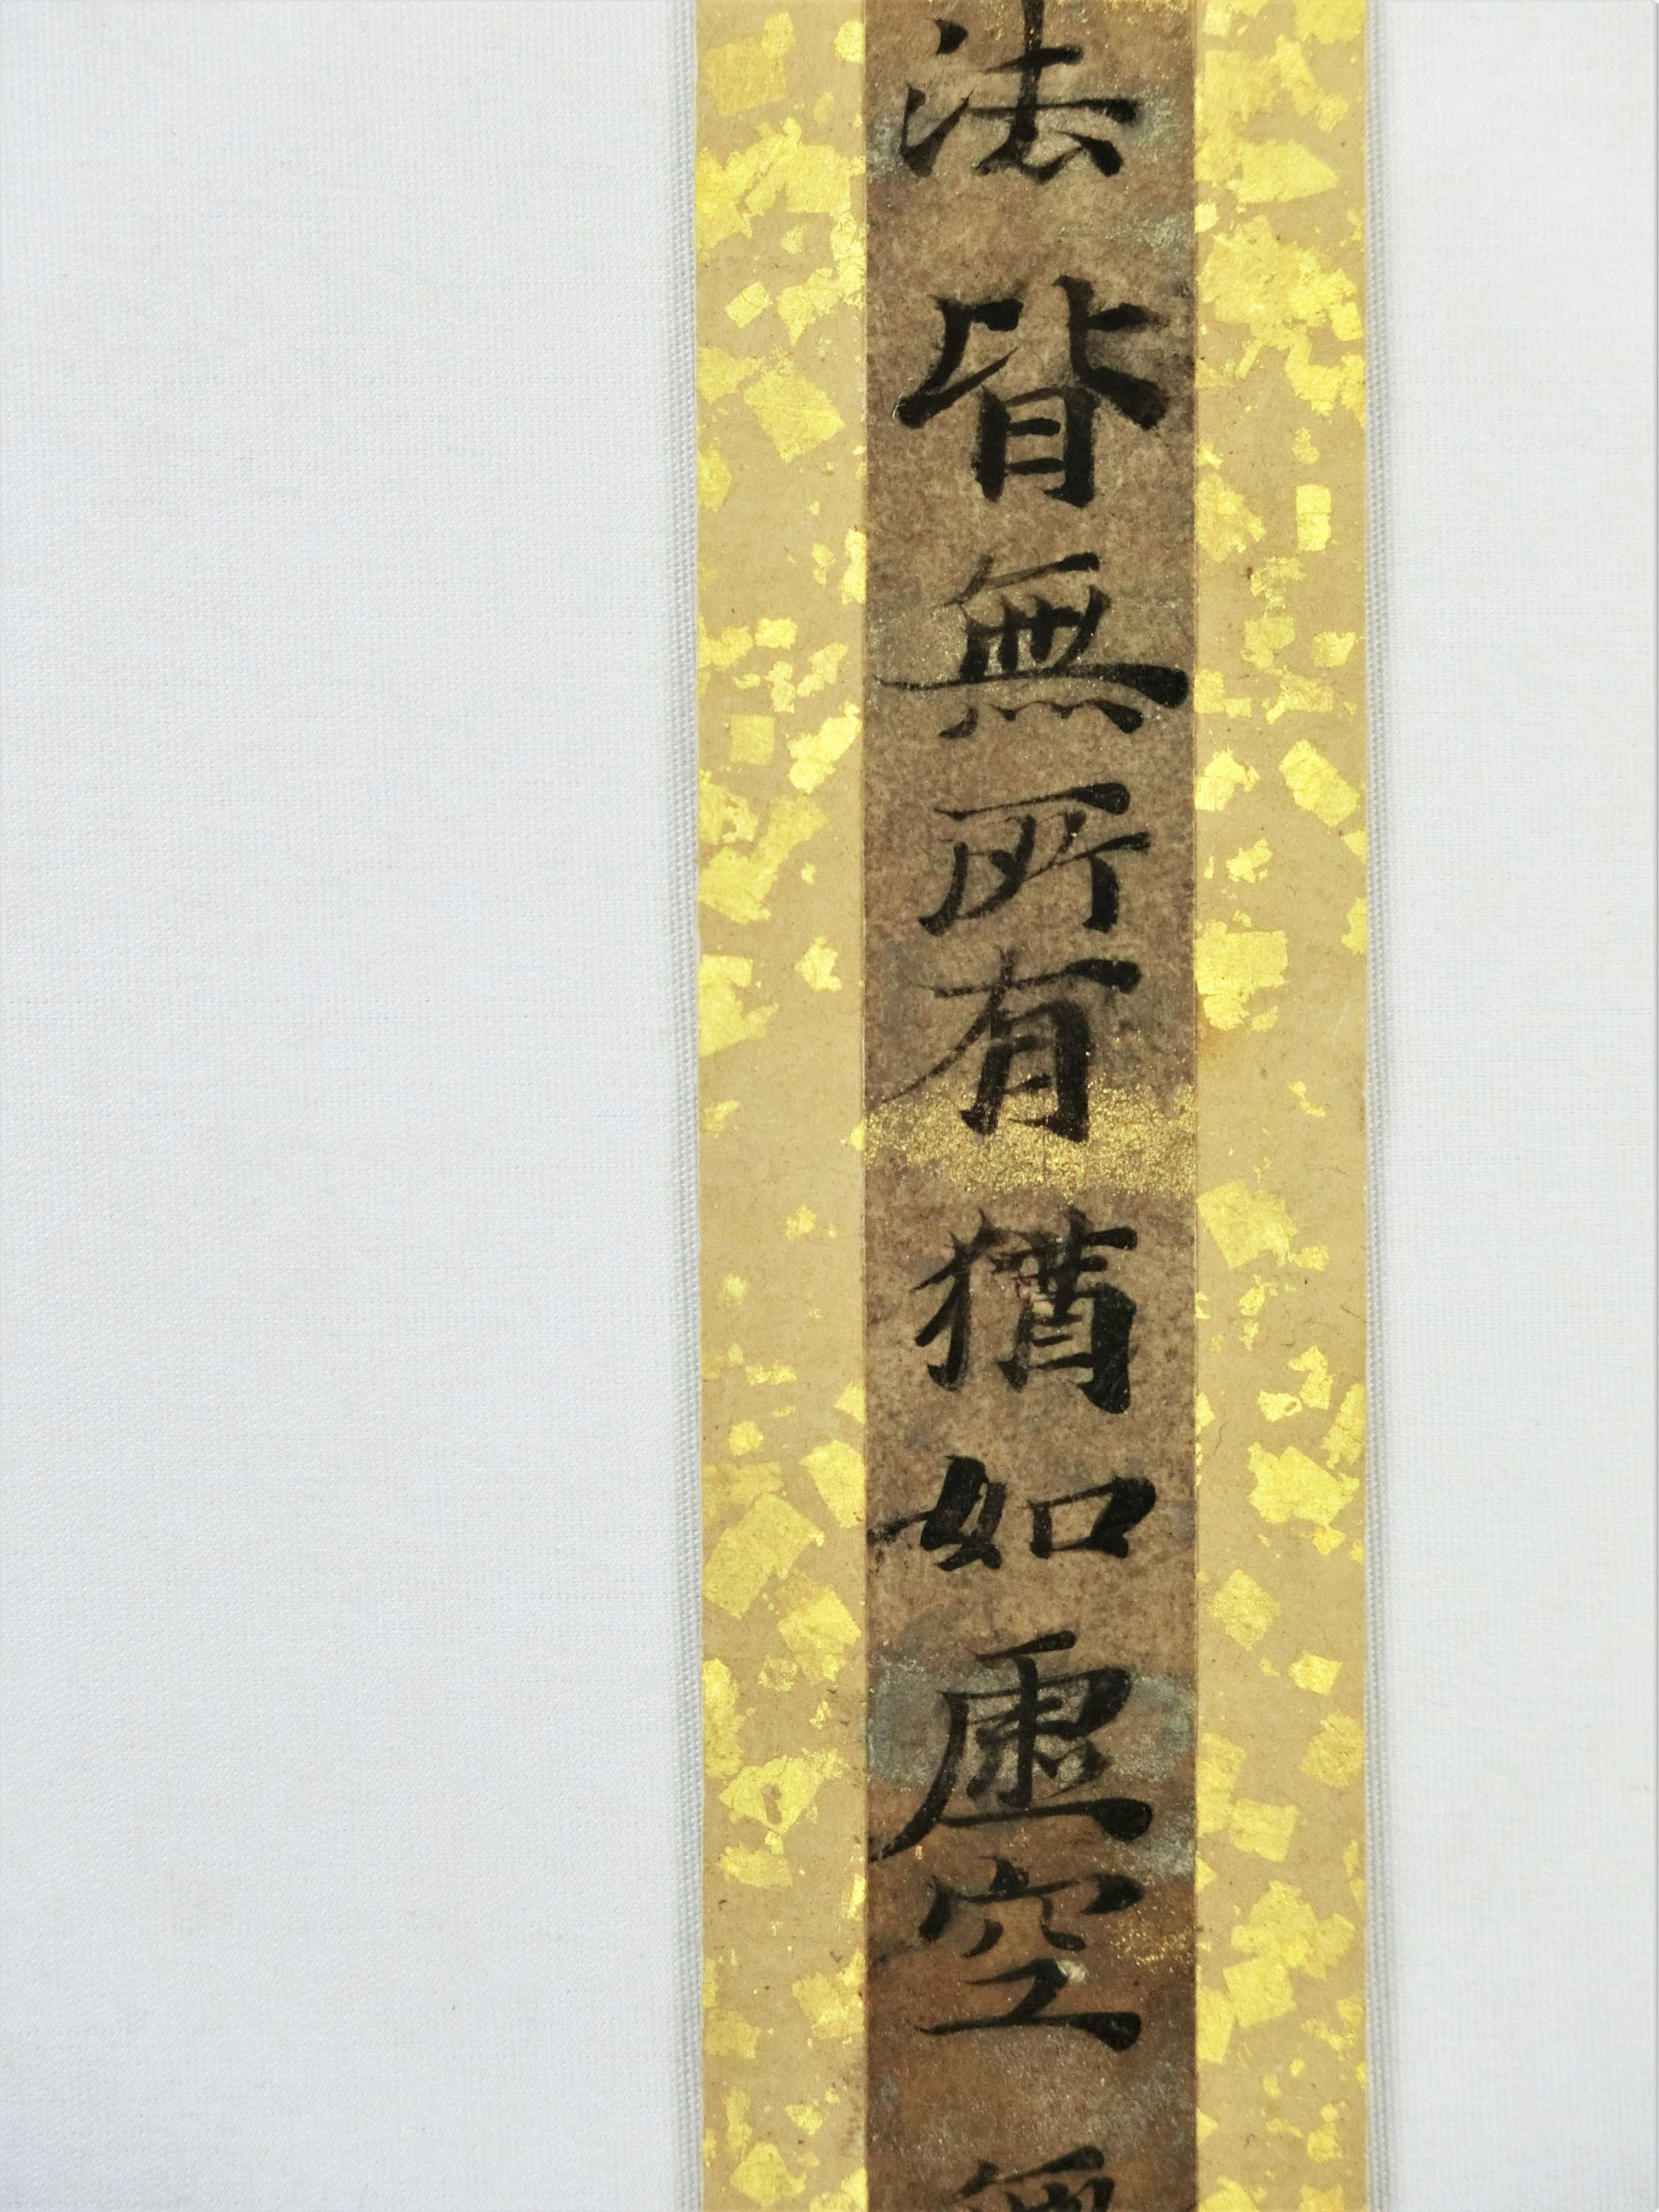 法皆無所有猶如虚空無